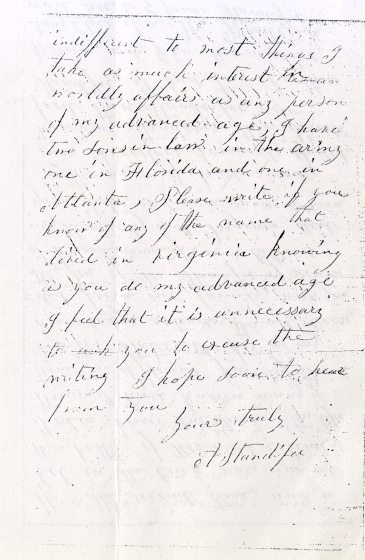 indifferent to most things I
take as much interest in
worldly affairs as any person
of my advanced age, I have
two sons in law in the army
one in Florida and one in
Attlanta, Please write if you
know of any of the name that
lived in Virginia knowing
as you do my advanced age
I feel that it is unnecessary
to ask you to excuse the
writing I hope soon to hear
from you
Yours truly
A Standifer